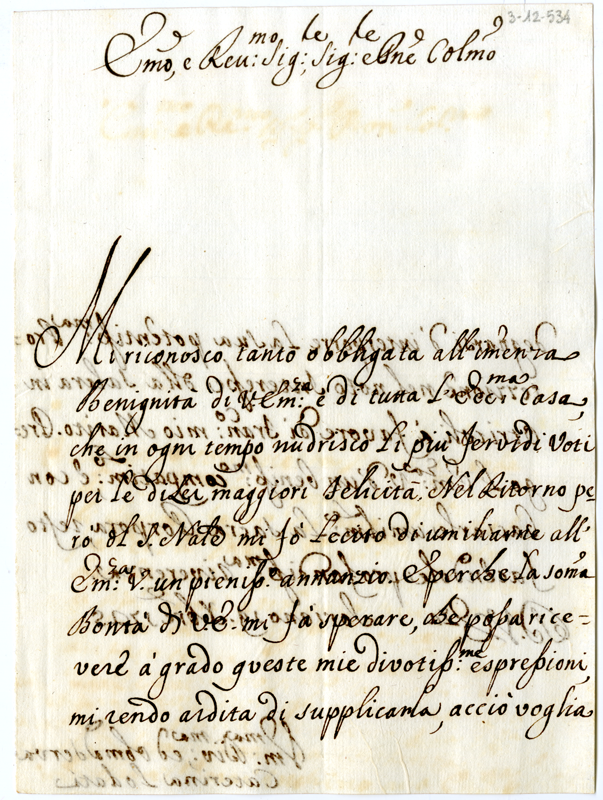 3-12-534
Em̃o, e Reu:mo Sig:re Sig:re e Pne Colmo
Mi riconosco tanto obbligata all'imenza
Benignita di V. Em:za e di tutta L'Ecc:ma Casa,
che in ogni tempo nudrisco li più fervidi voti
per le di Lei maggiori Felicità. Nel Ritorno pe=
ro del S. Nale mi fò lecito di umiliarne all'
Em:za V. un pieniss:o annunzio. E perche la soma
Bontà di V. E. mi fà sperare, che possa rice=
vere à grado queste mie divotiss:me espressioni,
mi rendo ardita di supplicarla, acciò voglia